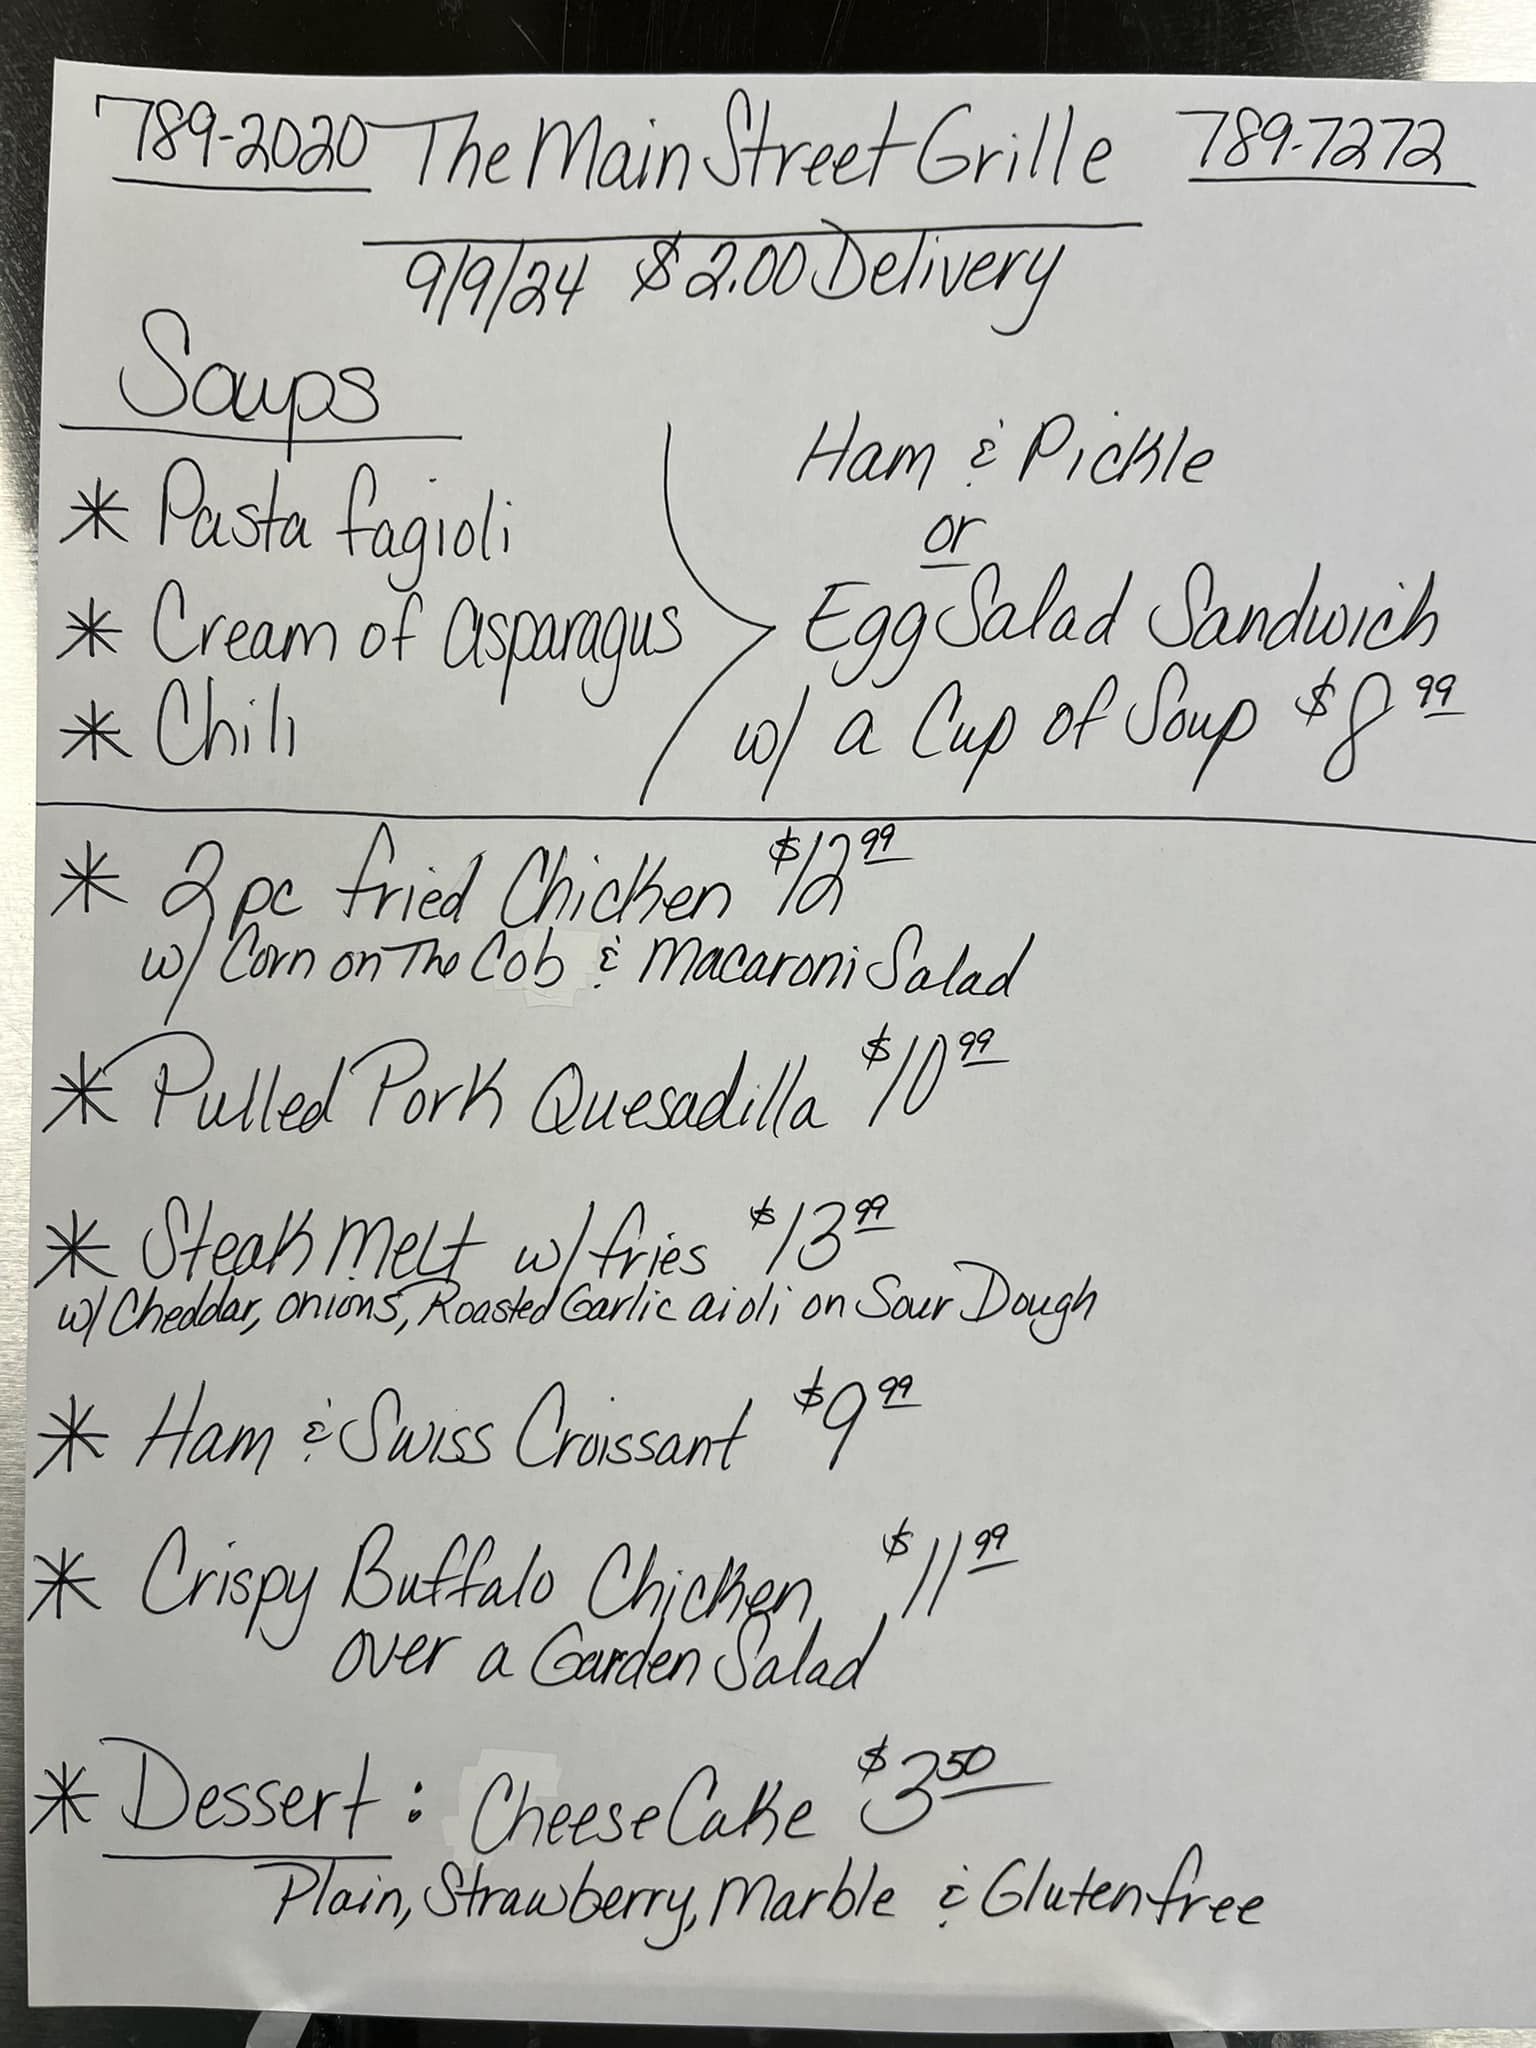 789-2020 The Main Street Grille 789-7272
9/9/24 $2.00 Delivery
Soups
* Pasta fagioli
* Cream of asparagus
* Chili
Ham & Pickle
or
Egg Salad Sandwich
w/ a Cup of Soup $8.99
* 2 pc fried Chicken $12.99
w/ Corn on The Cob & Macaroni Salad
* Pulled Pork Quesadilla $10.99
* Steak Melt w/ fries $13.99
w/ Cheddar, onions, Roasted Garlic aioli on Sour Dough
* Ham & Swiss Croissant $9.99
* Crispy Buffalo Chicken $11.99
over a Garden Salad
* Dessert: CheeseCake $3.50
Plain, Strawberry, Marble & Gluten free